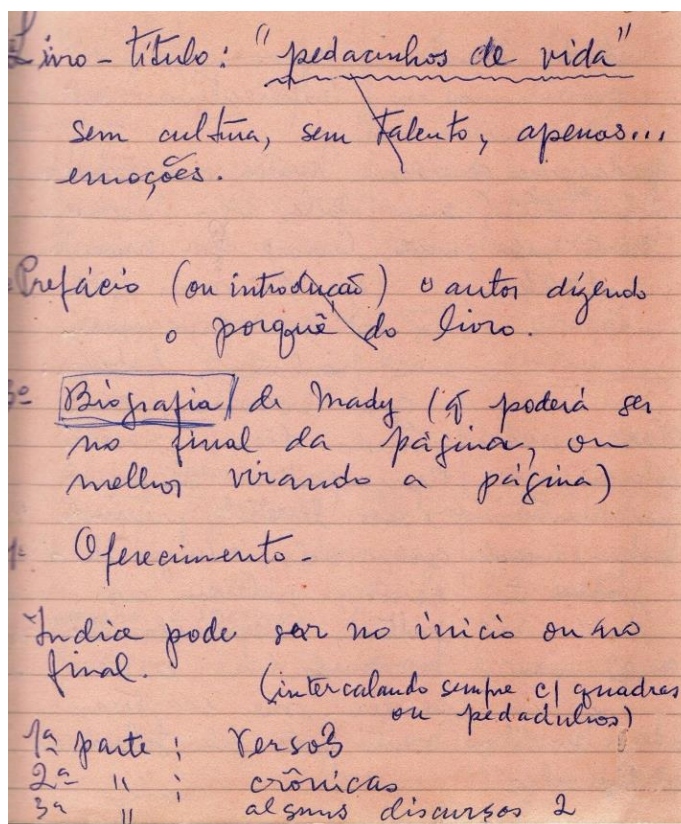 Livro - título: "pedacinhos de vida"
sem cultura, sem talento, apenas...
emoções.
Prefácio (ou introdução) o autor dizendo
o porquê do livro.
3º Biografia de Mady (q poderá ser
no final da página, ou
melhor virando a página)
Oferecimento -
Índice pode ser no início ou no
final.
(intercalando sempre c/ quadras
ou pedadulhos)
1ª parte : Versos
2ª " : crônicas
3ª " alguns discursos 2